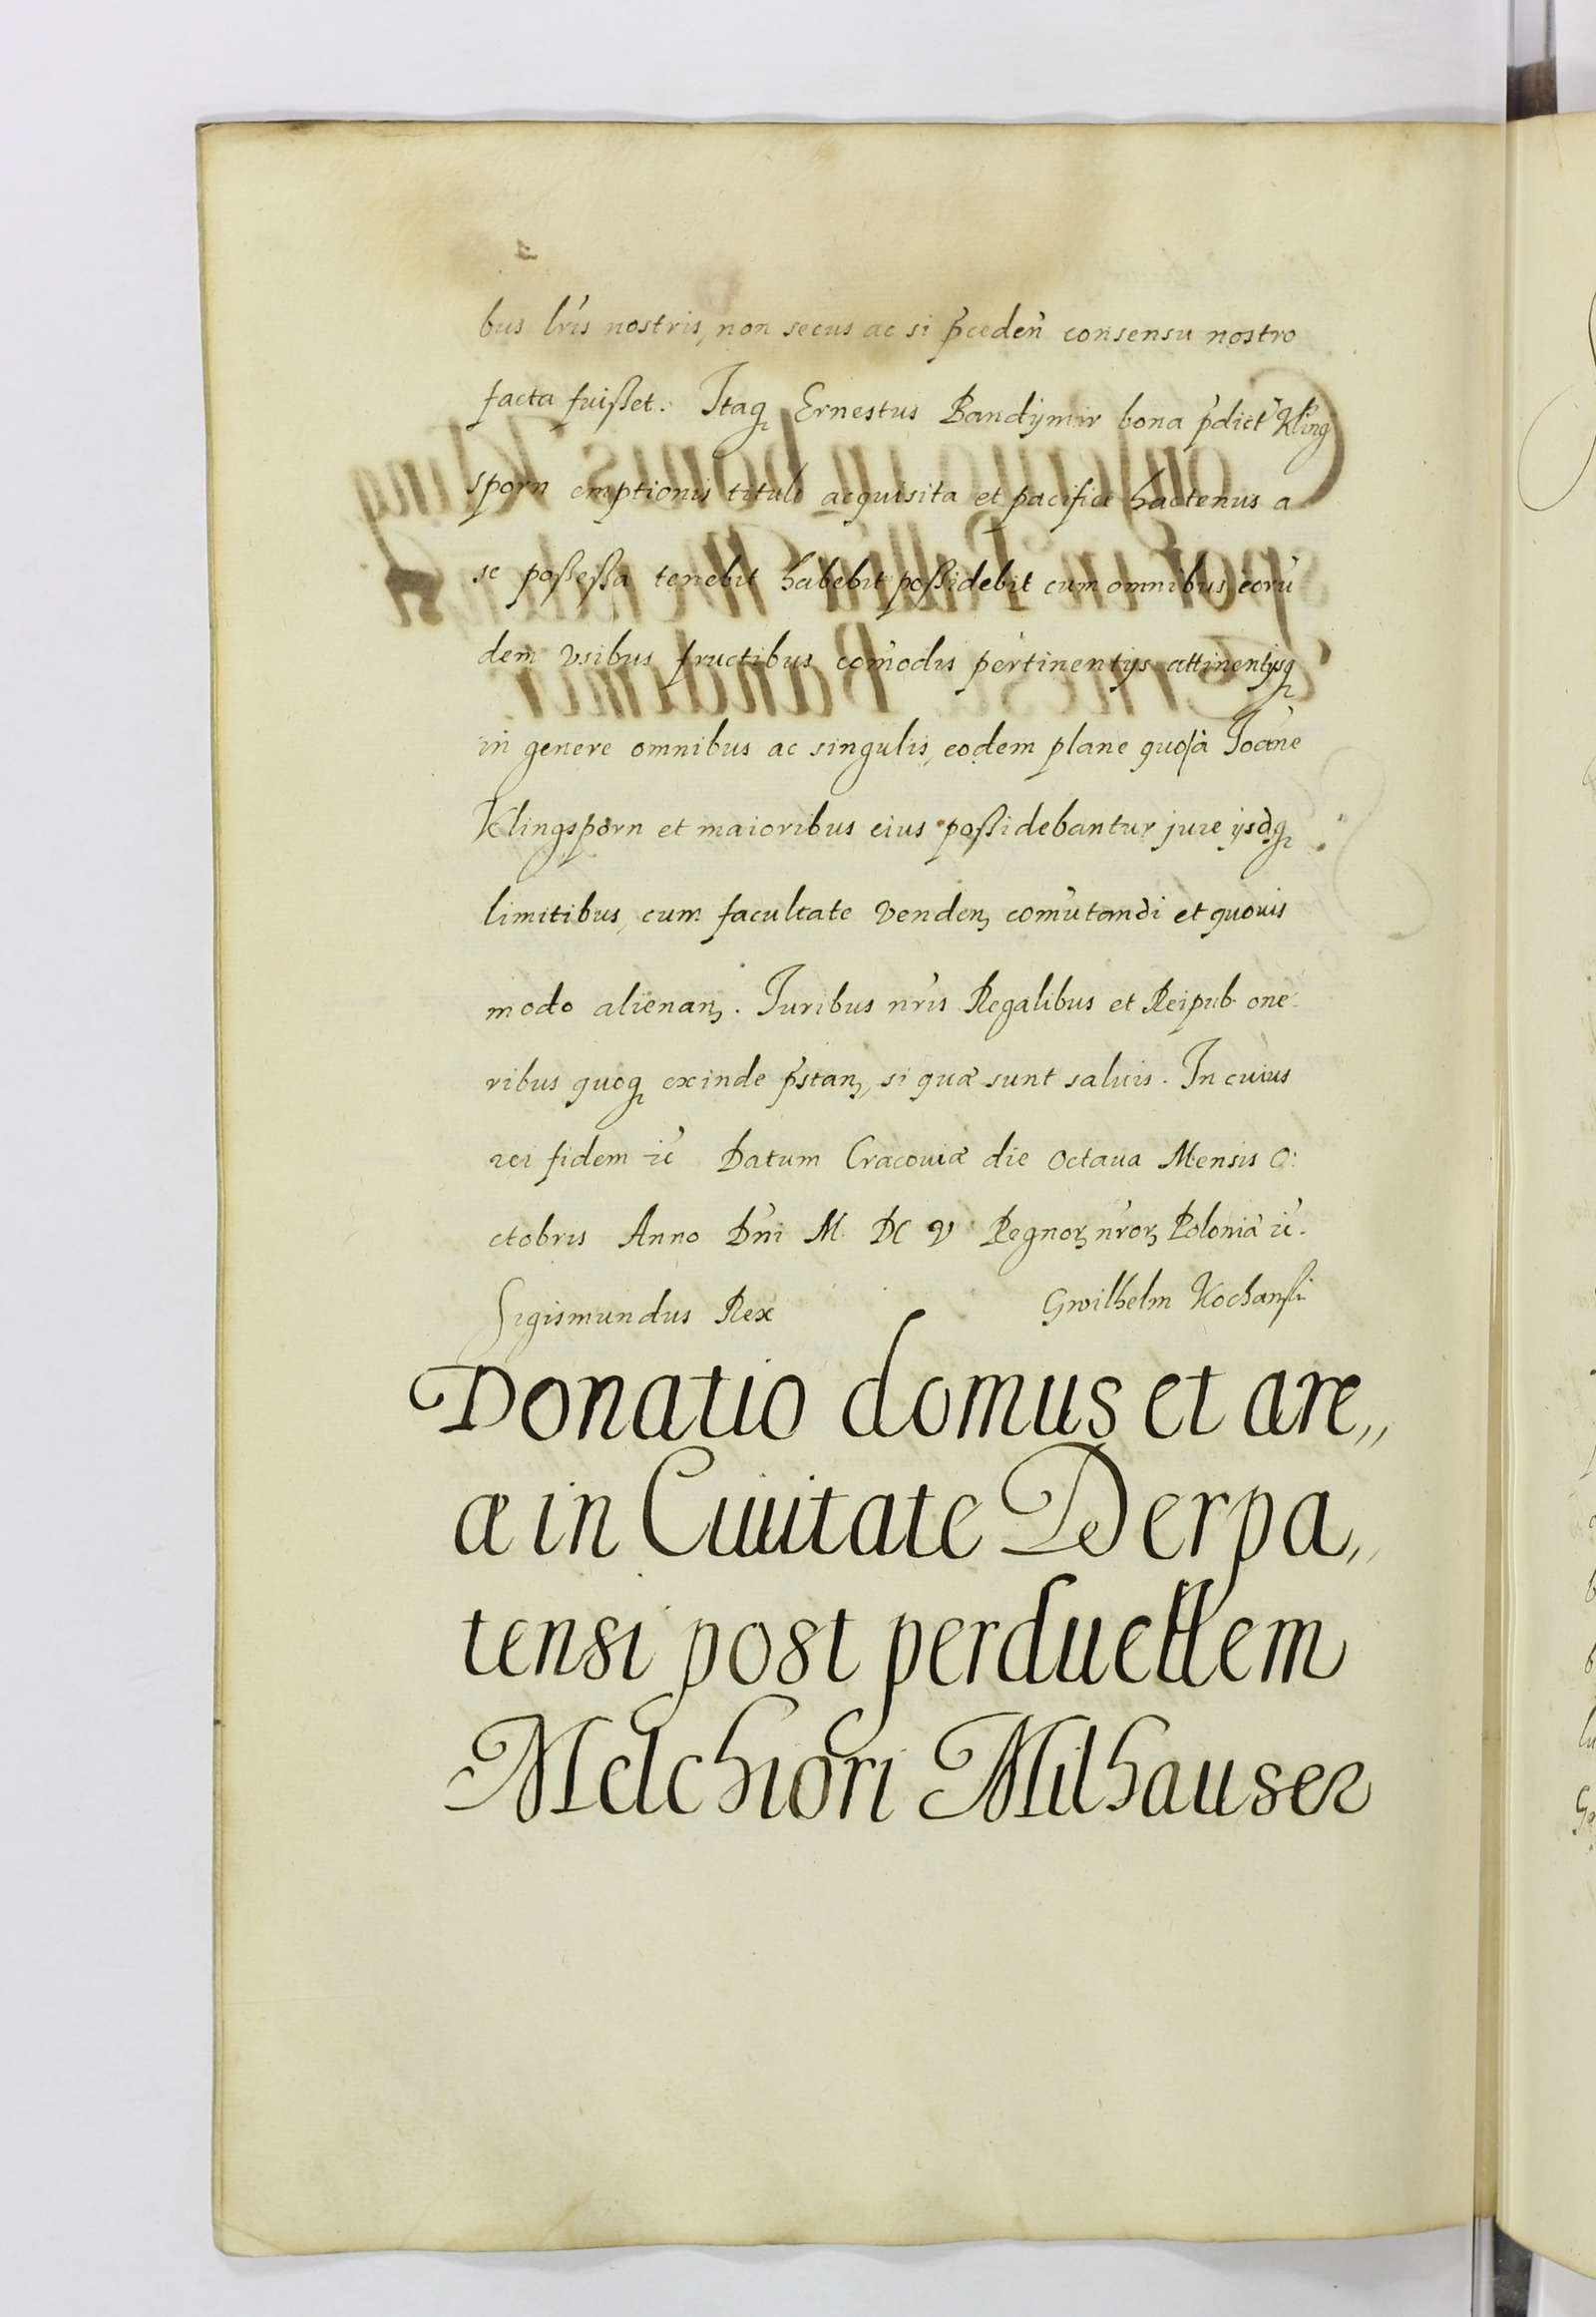 bus lr̃is nostris, non secus ac si p̃ceden̄ consensu nostro
facta fuißet. Itaq₂ Ernestus Bandÿmir bona p̃dict̃ Kling
sporn emptionis titulo acquisita et pacifice hactenus a
se poßeßa tenebit habebit poßidebit cum omnibus eorũ
dem vsibus fructibus com̃odis pertinentijs attinentijsq₂
in genere omnibus ac singulis, eodem plane quo à Joãne
Klingsporn et maioribus eius poßidebantur jure ijsdq₂
limitibus, cum facultate venden₃ com̃utandi et quouis
modo alienan₃. Juribus nr̃is Regalibus et Reipub. one
ribus quoq₂ exinde p̃stan₃, si quæ sunt saluis. In cuius
rei fidem ꝛc̃ Datum Cracouiæ die octaua Mensis O:
ctobris Anno Dñi M. DC V Regnoꝝ nr̃oꝝ Poloniæ ꝛc̃.
Sigismundus Rex Gwilhelm Kochanſki
Donatio domus et are,,
æ in Ciuitate Derpa,,
tensi post perduellem
Melchiori Milhauser